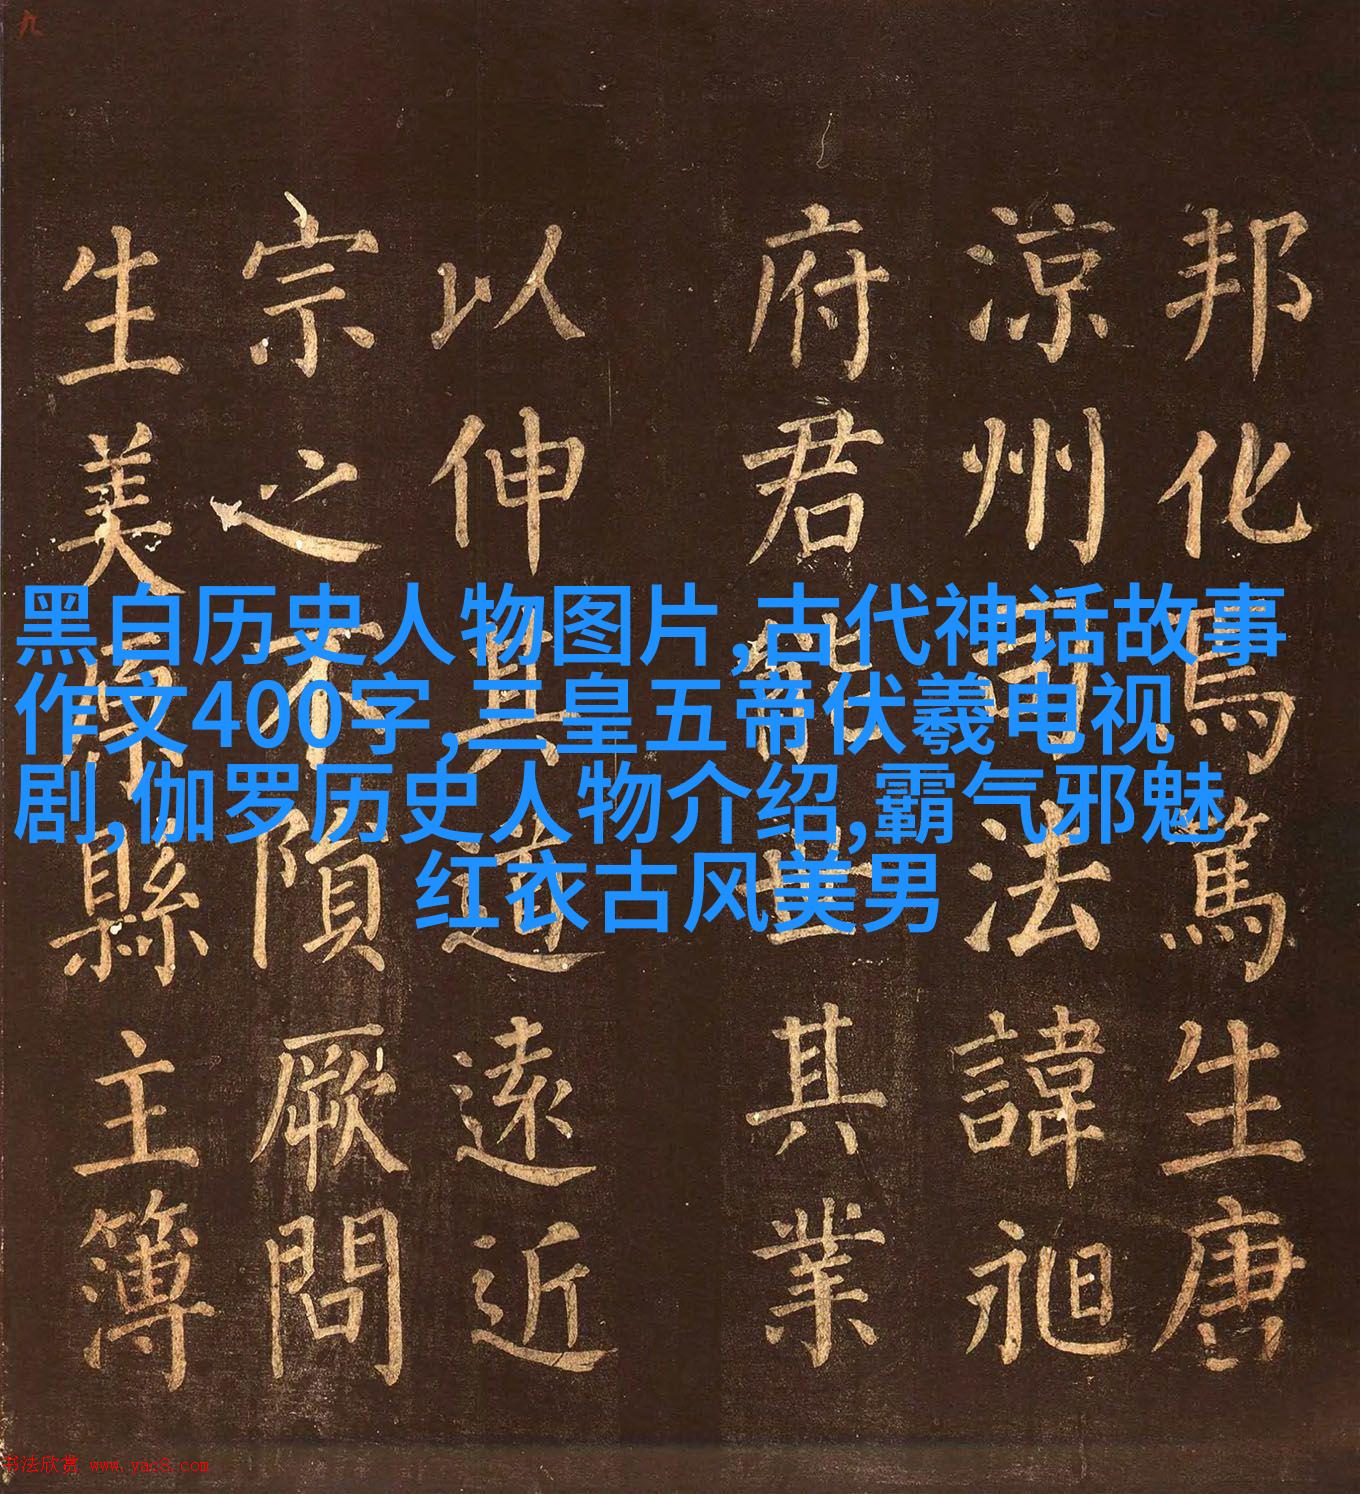 九
邦化焉篤生唐
涼州司法諱昶
府君能世其業
以伸其道遠近
宗之不隕厥問
生美原縣主簿
黑白历史人物图片,古代神话故事
作文400字,三皇五帝伏羲电视
剧,伽罗历史人物介绍,霸气邪魅
红衣古风美男
书法欣赏 www.yac8.com